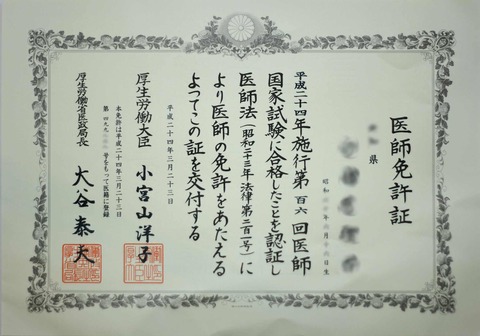 医師免許証
県
昭和 年 月 日生
平成二十四年施行第百六回医師
国家試験に合格したことを認証し
医師法（昭和二十三年法律第二百一号）に
より医師の免許をあたえる
よってこの証を交付する
平成二十四年三月二十三日
厚生労働大臣 小宮山洋子
本免許は平成二十四年三月二十三日
第 号をもって医籍に登録
厚生労働省医政局長 大谷泰夫